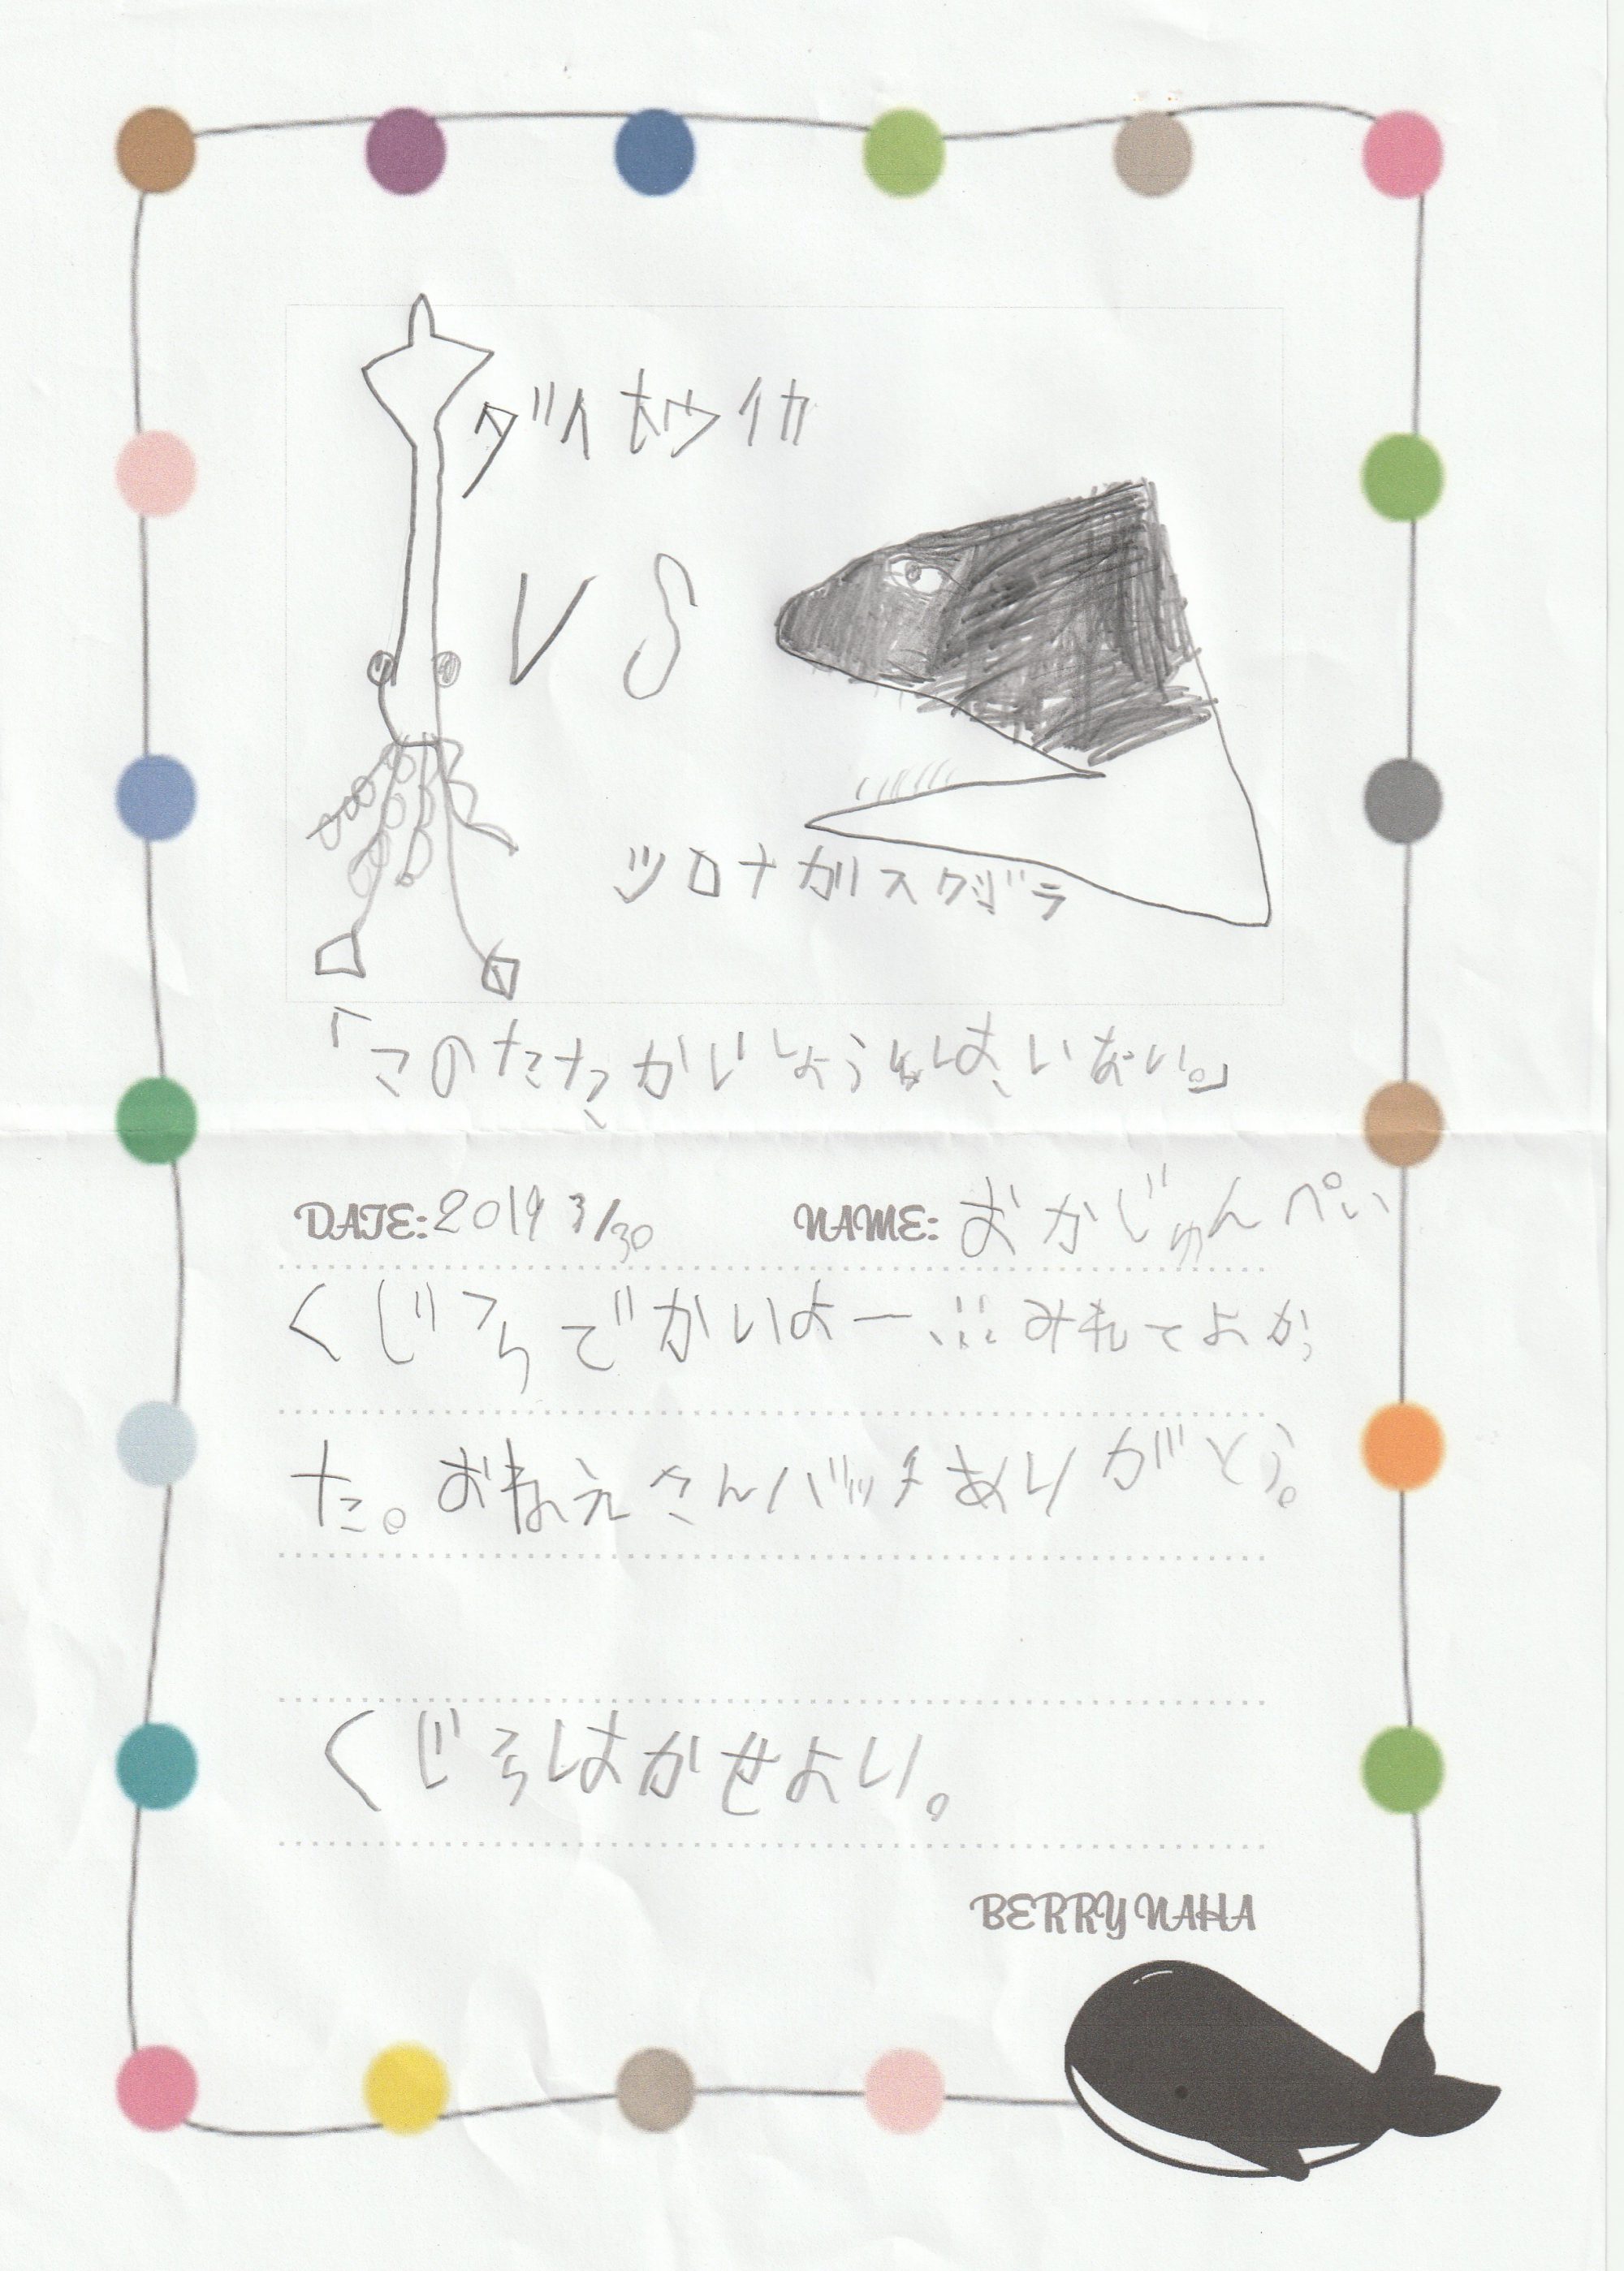 ダイオウイカ
VS
ツロナガスクジラ
「このたたかいしょうしゃはいない。」
DATE: 2019 3/30 NAME: おかじゅんぺい
くじらでかいよー、!!! みれてよかっ
た。おねえさんバッチありがとう。
くじらはかせより。
BERRY NAHA